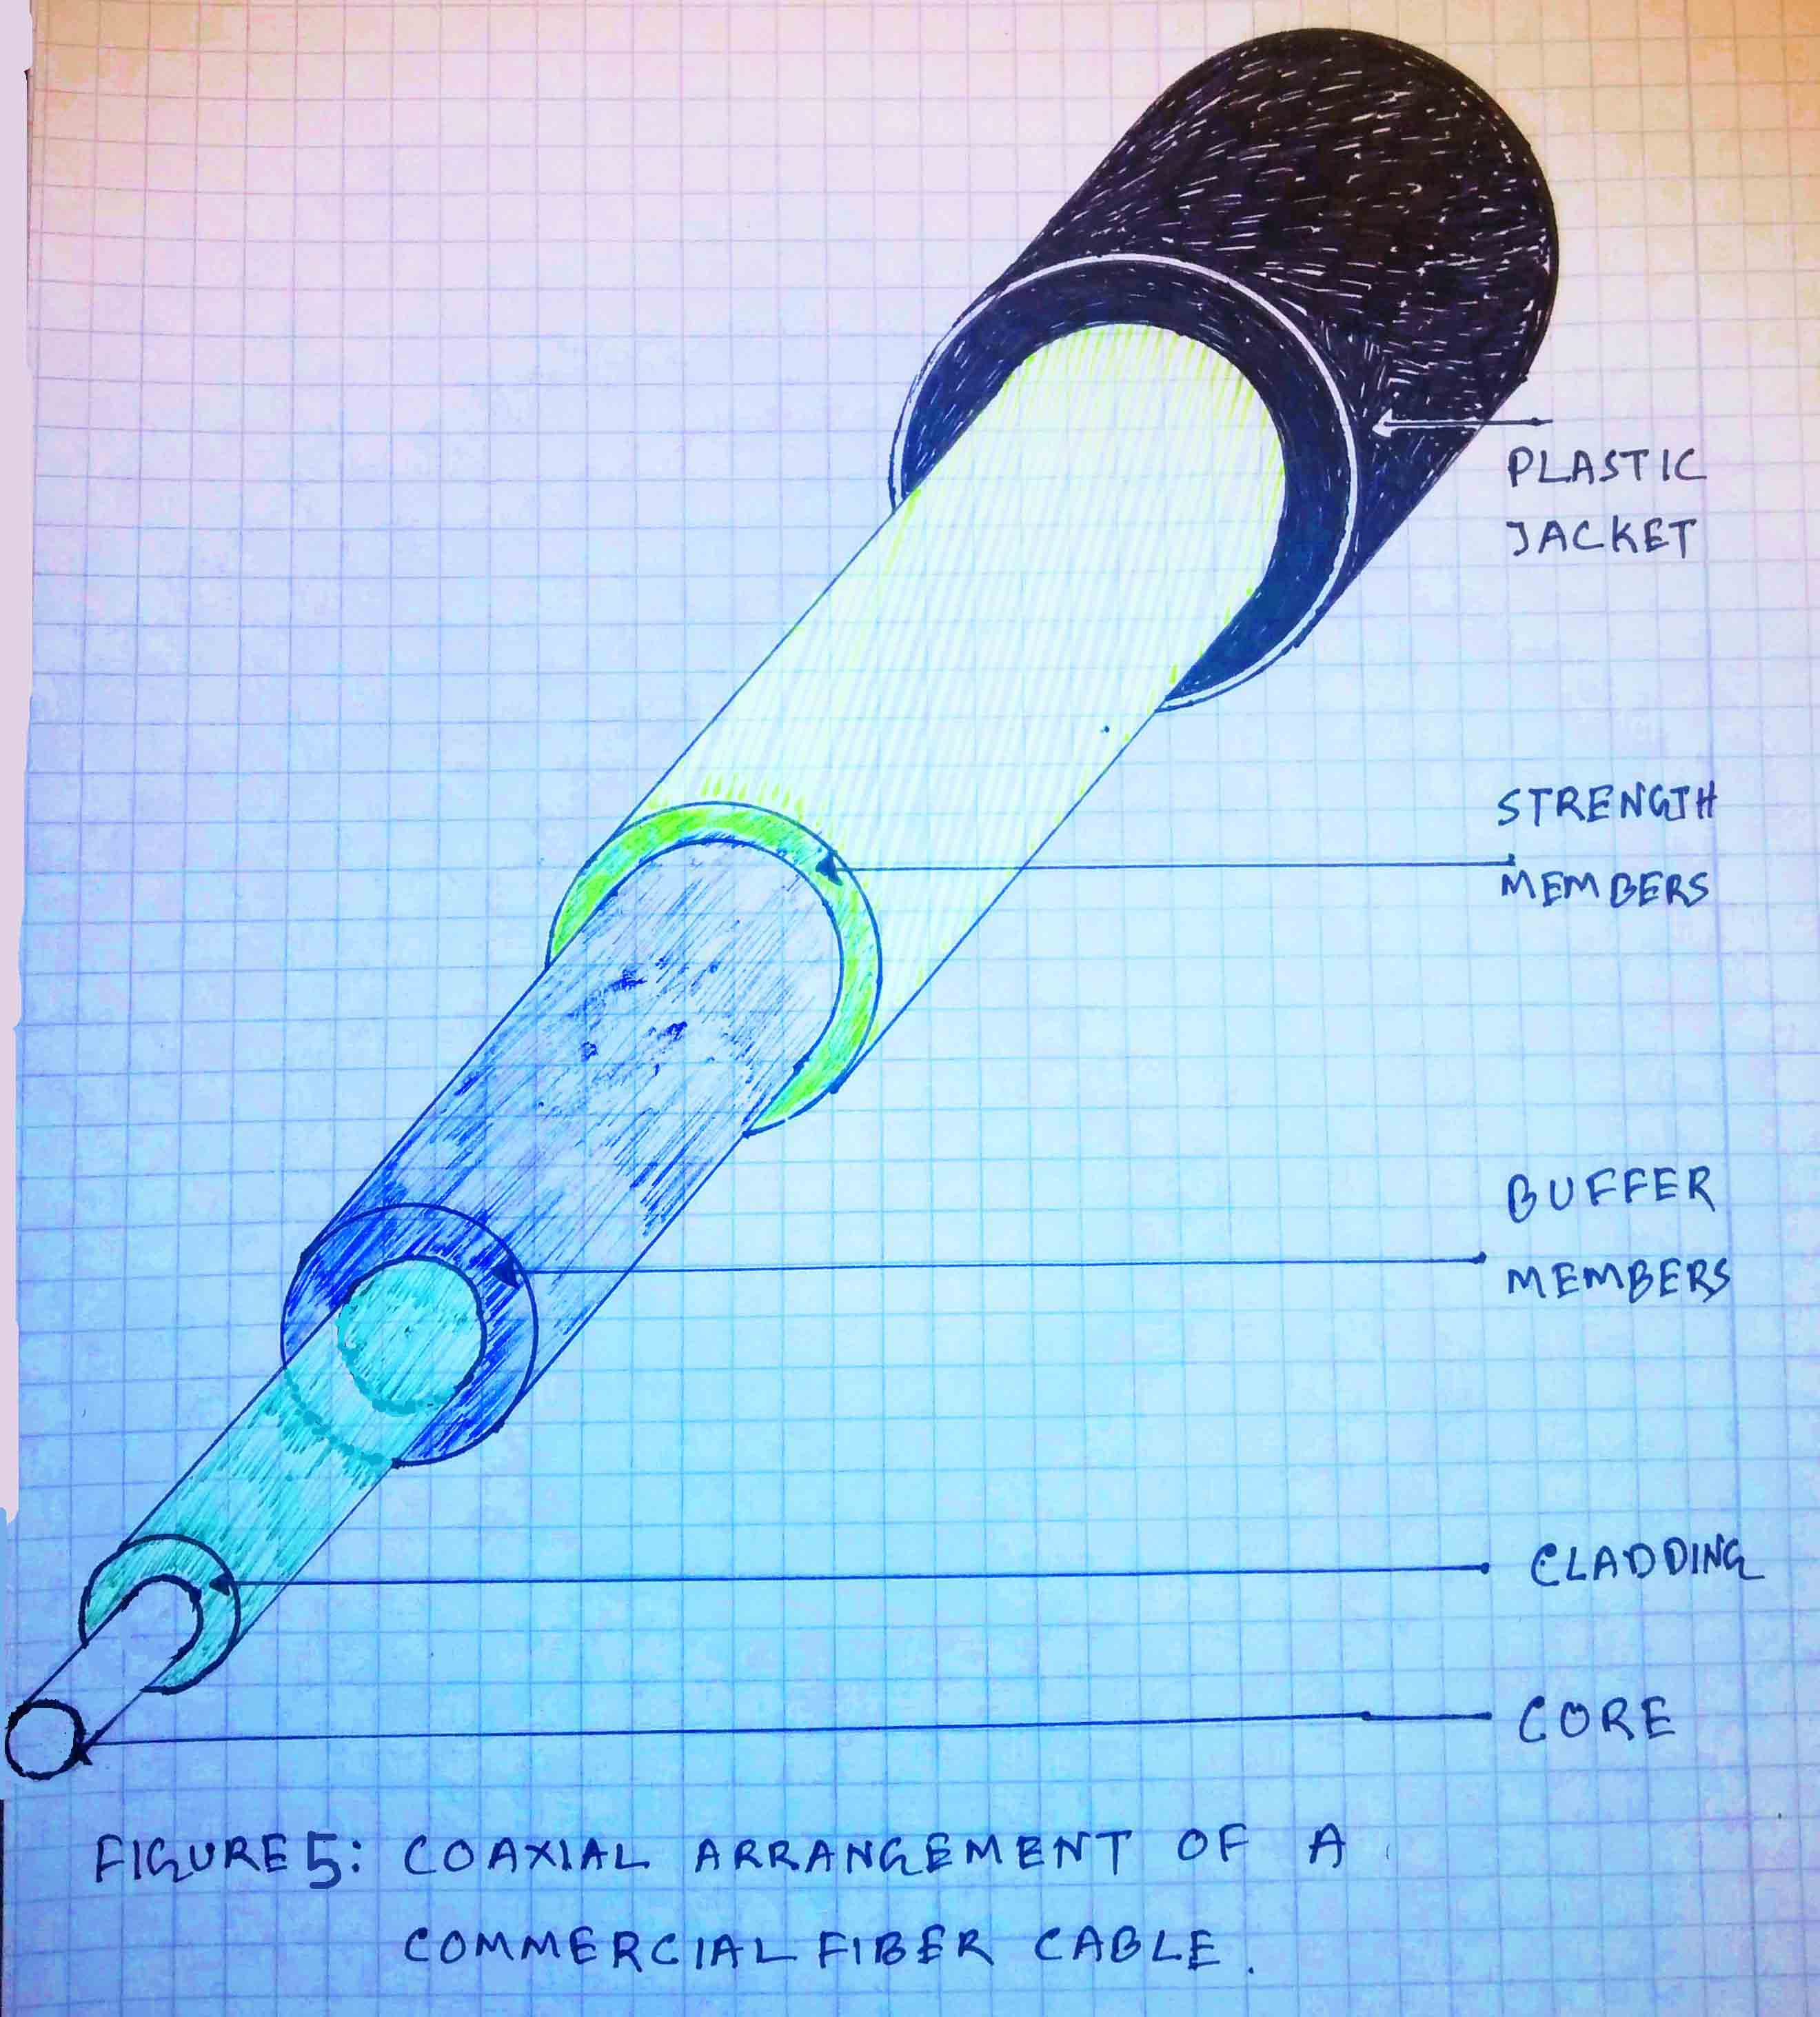 PLASTIC
JACKET
STRENGTH
MEMBERS
BUFFER
MEMBERS
CLADDING
CORE
FIGURE 5: COAXIAL ARRANGEMENT OF A
COMMERCIAL FIBER CABLE.